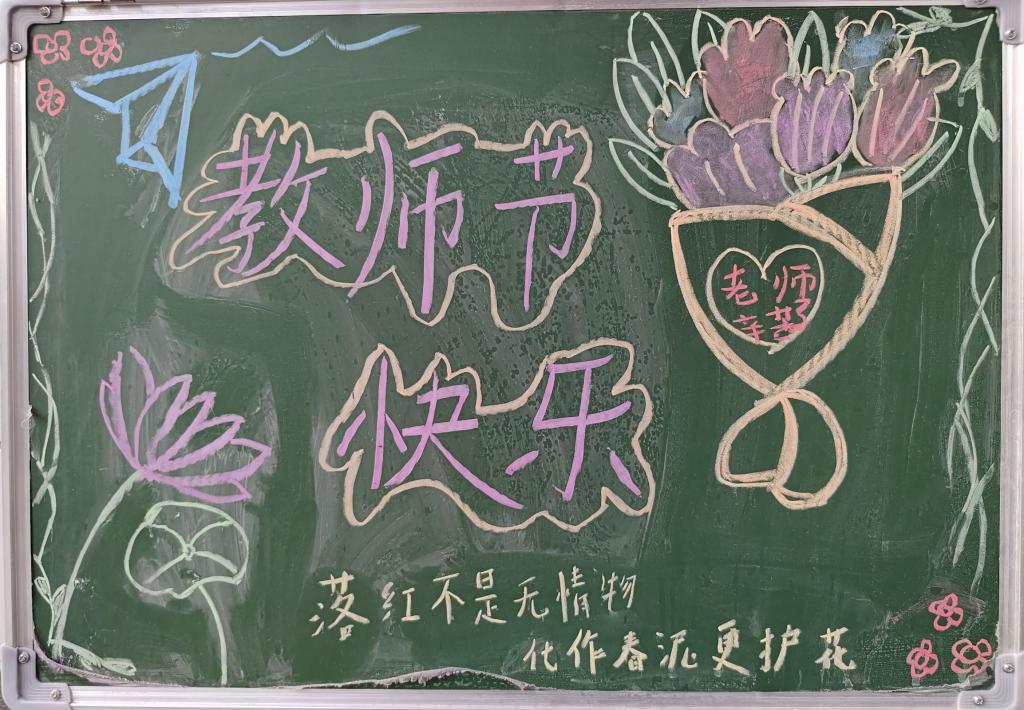 教师节
快乐
老师
辛苦了
落红不是无情物
化作春泥更护花